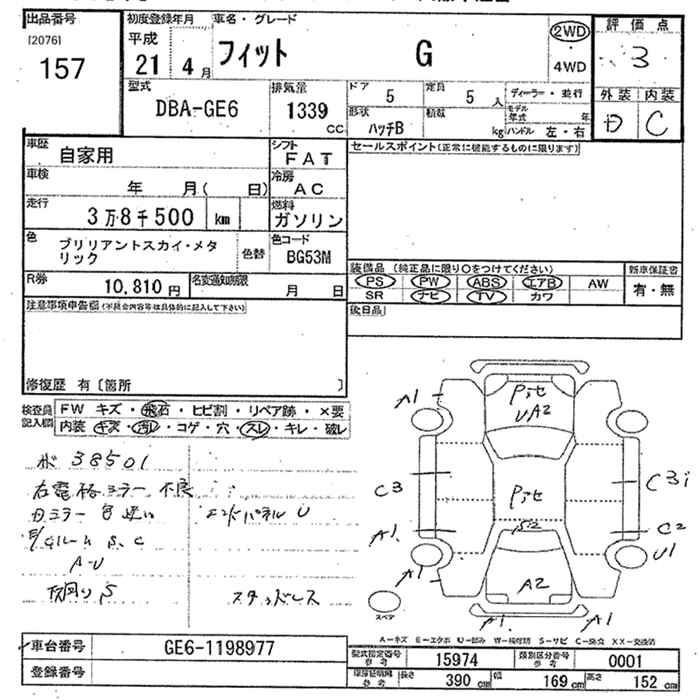 出品番号
[2076]
157
初度登録年月
平成
21 4 月
車名・グレード
フィット G
2WD
4WD
評価点
3
型式
DBA-GE6
排気量
1339
cc
ドア
5
定員
5 人
形状
ハッチB
積載
kg
ディーラー・並行
モデル年式 年
ハンドル 左・右
外装 内装
D C
車歴
自家用
シフト
FAT
車検
年 月( 日)
冷房
AC
走行
3万8千500 km
燃料
ガソリン
色
ブリリアントスカイ・メタリック
色替
色コード
BG53M
R券
10,810 円
名変通知期限
月 日
セールスポイント(正常に機能するものに限ります)
装備品 (純正品に限り○をつけてください)
PS PW ABS エアB AW
SR ナビ TV カワ
新車保証書
有・無
後日品
注意事項申告欄(不具合内容等は具体的に記入して下さい)
修復歴 有〔箇所 〕
検査員記入欄
FW キズ・飛石・ヒビ割・リペア跡・×要
内装 キズ・汚レ・コゲ・穴・スレ・キレ・破レ
38501
右電格ミラー不良
ミラー色違い
エンドパネル U
S, C
A-U
下廻り S
スタッドレス
A1
UA2
A1
C3
C3
C2
A1
U1
A1
A2
A1
A1
スペア
A-キズ E-エクボ U-凹み W-補修跡 S-サビ C-腐食 XX-交換済
車台番号
GE6-1198977
登録番号
型式指定番号
参考
15974
類別区分番号
参考
0001
参考
長さ 390 cm 幅 169 cm 高さ 152 cm